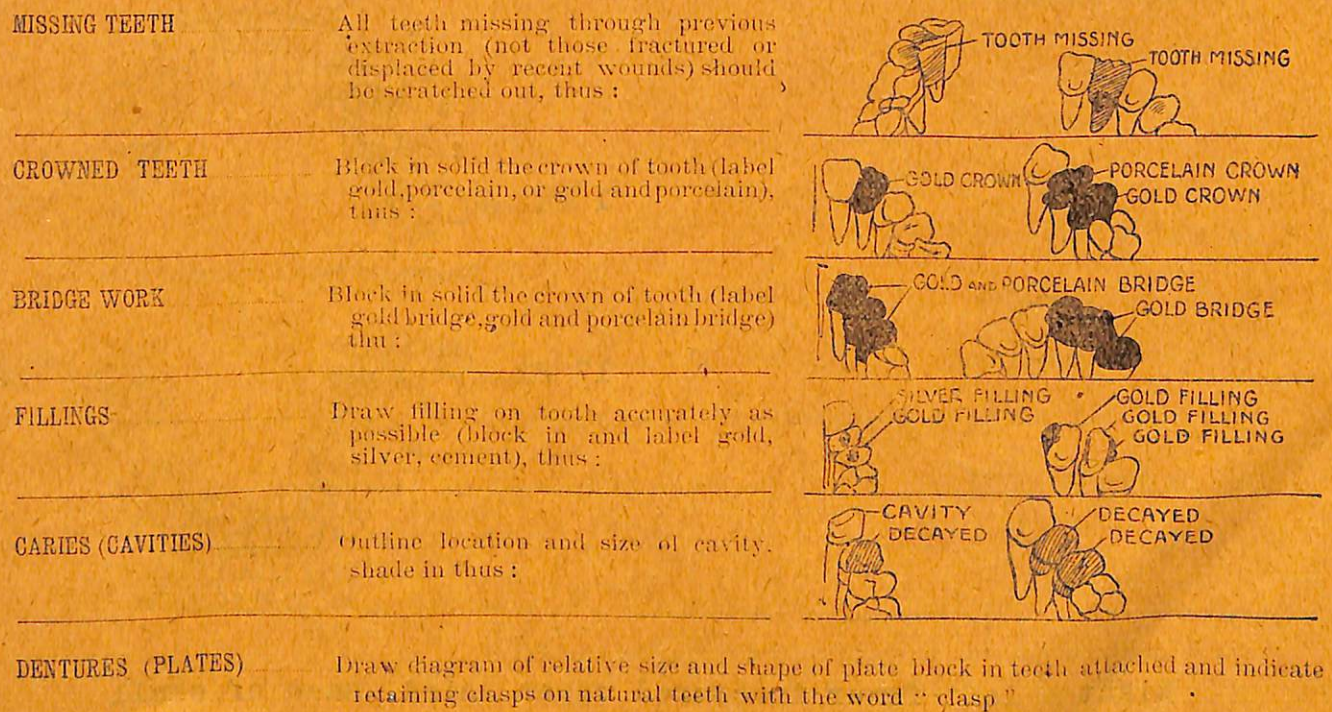 MISSING TEETH
All teeth missing through previous
extraction (not those fractured or
displaced by recent wounds) should
be scratched out, thus :
TOOTH MISSING
TOOTH MISSING
CROWNED TEETH
Block in solid the crown of tooth (label
gold, porcelain, or gold and porcelain),
thus :
GOLD CROWN
PORCELAIN CROWN
GOLD CROWN
BRIDGE WORK
Block in solid the crown of tooth (label
gold bridge, gold and porcelain bridge)
thu :
GOLD AND PORCELAIN BRIDGE
GOLD BRIDGE
FILLINGS
Draw filling on tooth accurately as
possible (block in and label gold,
silver, cement), thus :
SILVER FILLING
GOLD FILLING
GOLD FILLING
GOLD FILLING
GOLD FILLING
CARIES (CAVITIES)
Outline location and size of cavity,
shade in thus :
CAVITY
DECAYED
DECAYED
DECAYED
DENTURES (PLATES)
Draw diagram of relative size and shape of plate block in teeth attached and indicate
retaining clasps on natural teeth with the word " clasp "